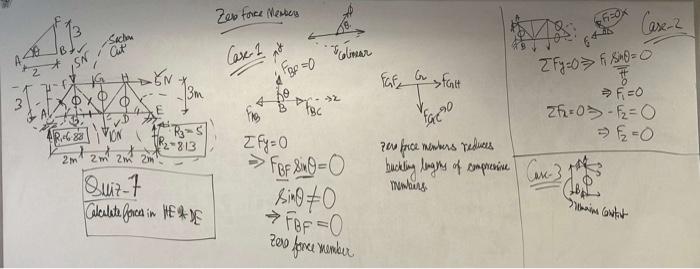 F
3
A
θ
B
2
5N
Section
Cut
F
G
H
5N
3
3m
A
B
D
E
R1=6.88
10N
R3=5
R2=813
2m 2m 2m 2m
Quiz-7
Calculate forces in HE & DE
Zero force Members
Case-1
colinear
FBF=0
θ
FAB
B
FBC
ΣFy=0
⇒ FBF sinθ=0
sinθ≠0
⇒ FBF=0
Zero force member
FGF
G
FGH
FGC=0
zero force members reduces
buckling lengths of compressive
members
Case-2
ΣFy=0⇒ F1 sinθ=0
⇒ F1=0
ΣFx=0⇒ -F2=0
⇒ F2=0
Case-3
remains